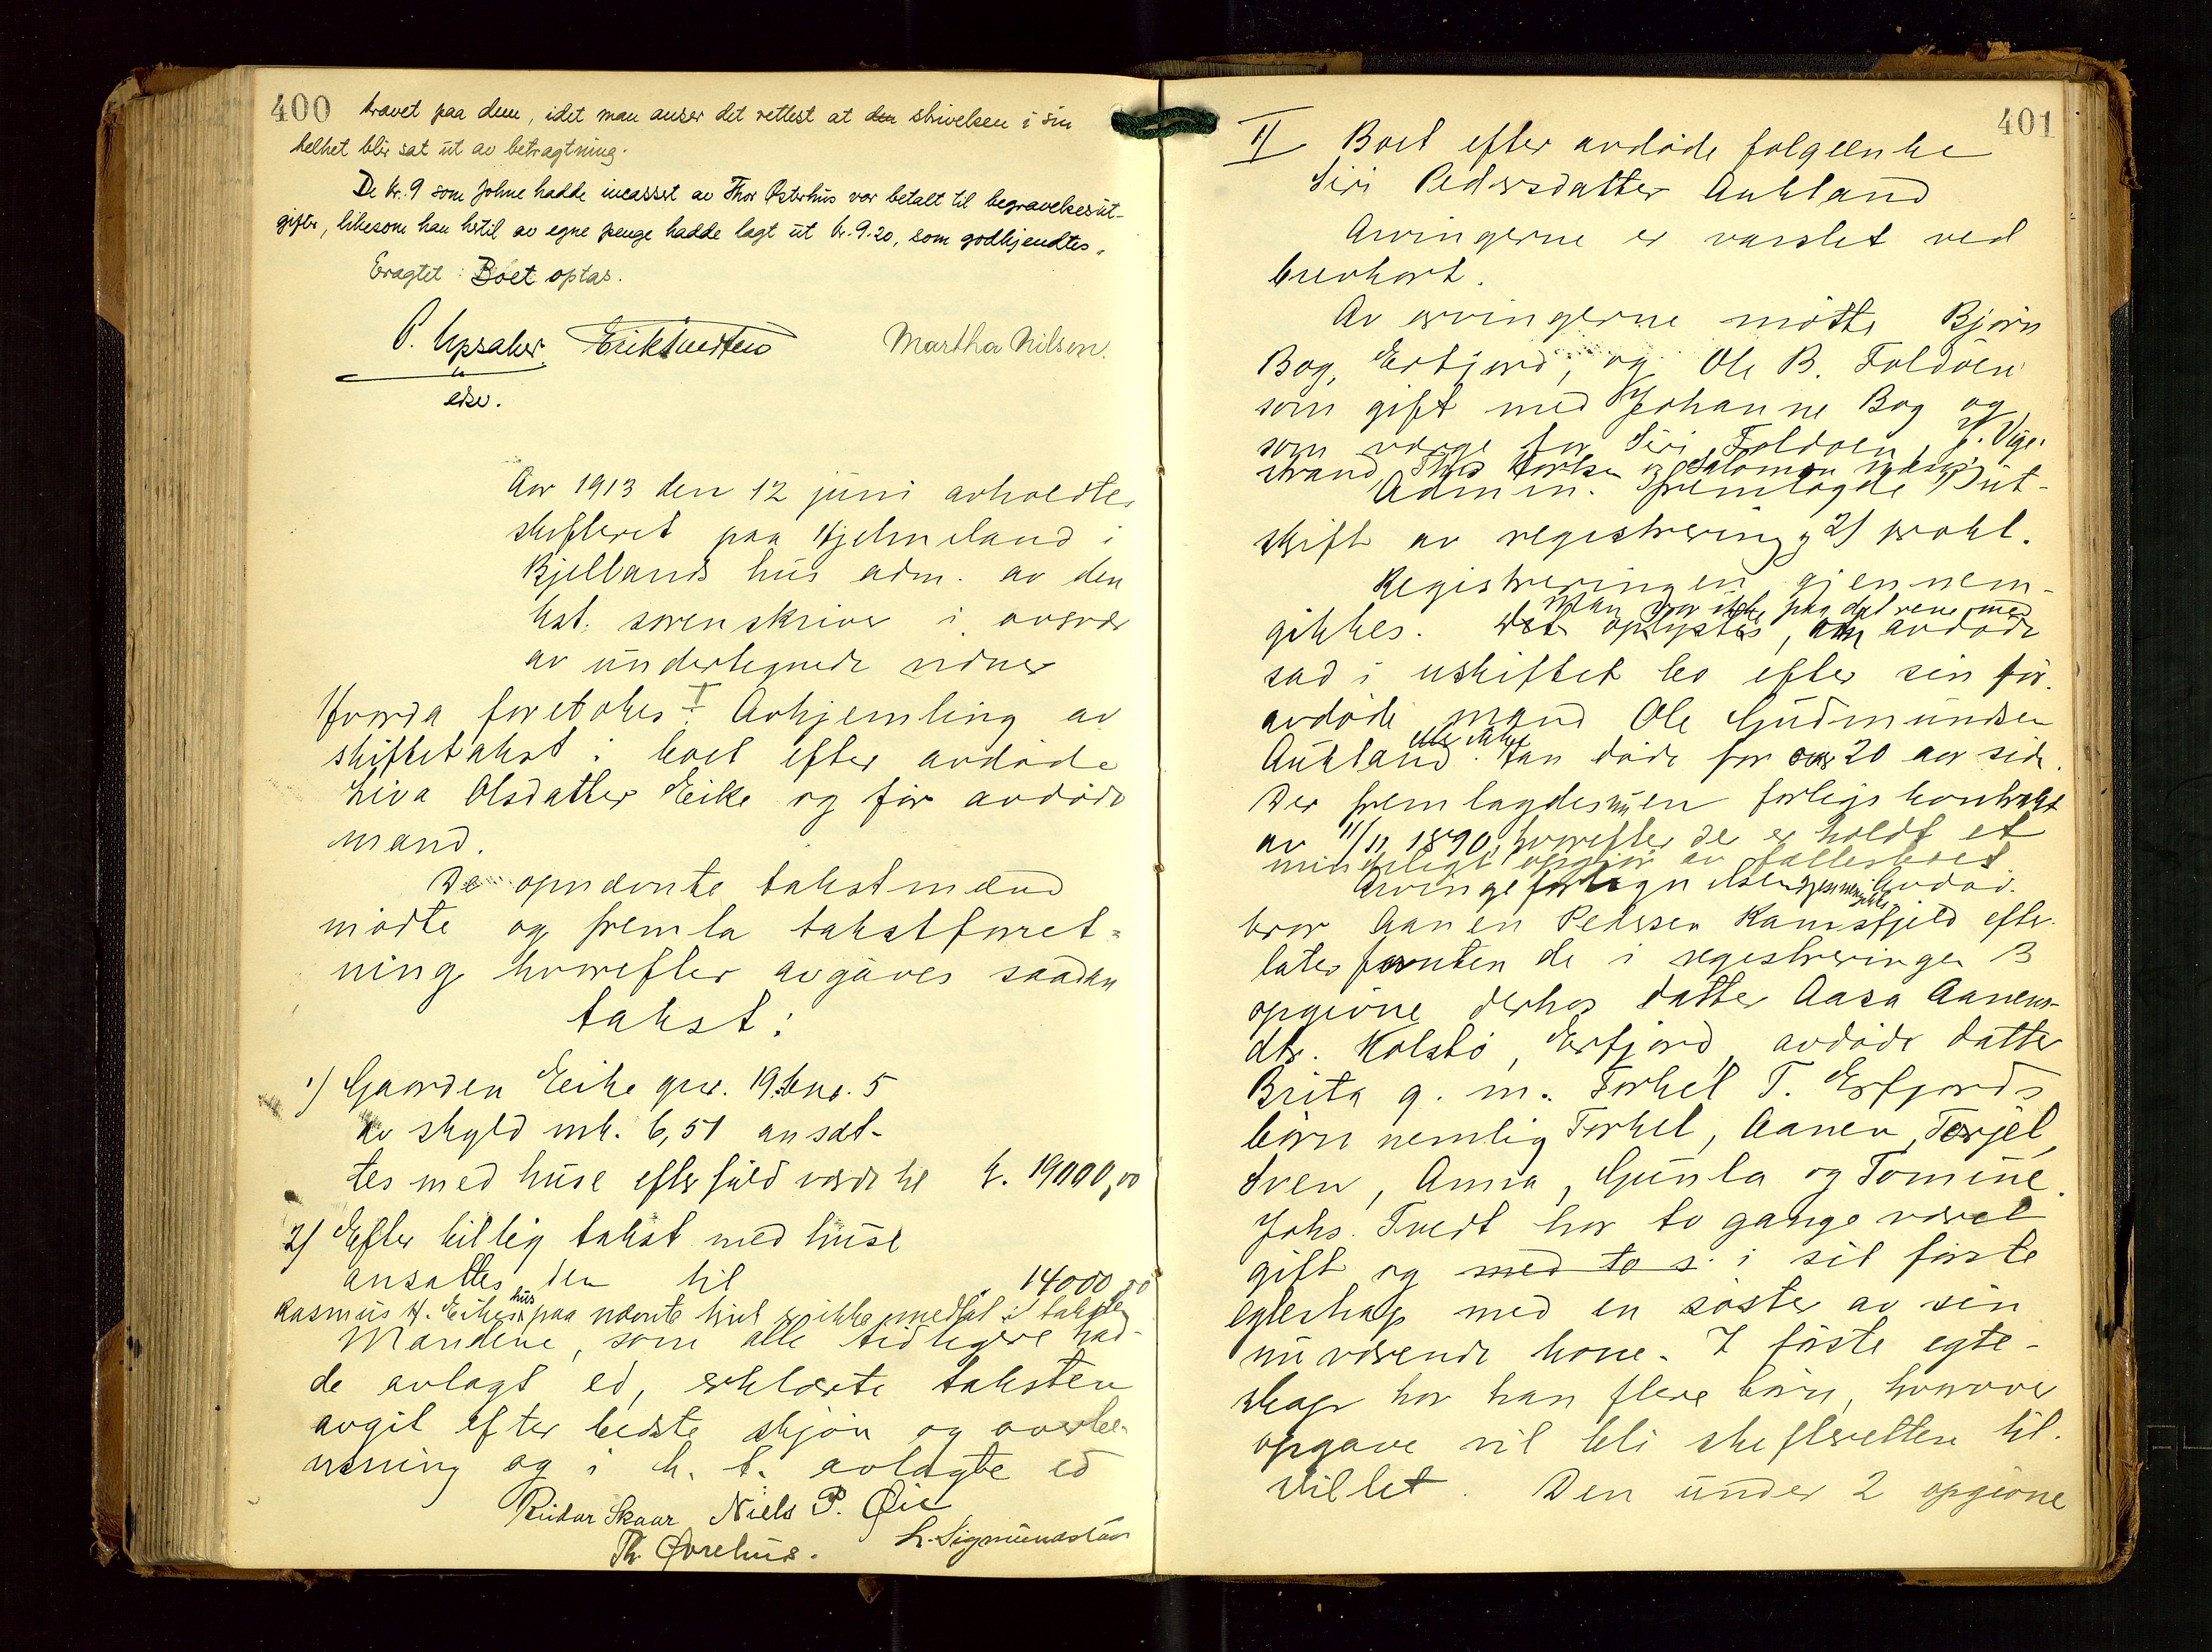 400
kravet paa dem, idet man anser det rettest at den skrivelsen i sin
helhet blir sat ut av betragtning.
De kr. 9 som Johne hadde incasseret av Thor Østerhus var betalt til begravelsesut-
gifter, likesom han hertil av egne penge hadde lagt ut kr. 9.20, som godkjendtes.
Eragtet: Boet optas.
P. Upsaker Erik Martha Nilsen.
edsv.
Aar 1913 den 12 juni avholdtes
skifteret paa Hjelmeland i
Kjellands hus adm. av den
kst. sorenskriver i overvær
av undertegnede vidner
Hvorda foretokes I Avhjemling av
skiftetakst i boet efter avdøde
Liva Olsdatter Eike og før avdøde
mand.
De opnævnte takstmænd
mødte og fremla takstforret-
ning hvorefter avgaves saadan
takst:
1) Gaarden Eike gnr. 19 bno. 5
av skyld mk. 6,51 ansæt-
tes med huse efter fuld værdi til k. 19000,00
2) Efter billig takst med huse
ansættes den til " 14000,00
Rasmus H. Eikes hus paa nævnte bruk er ikke medtat i taksten
Mændene, som alle tidligere had-
de avlagt ed, erklærte taksten
avgit efter bedste skjøn og overbe-
visning og i h. t. avlagte ed
Reidar Skaar Niels P. Øie
Th. Øvrehus. L. Sigmundstad
401
II Boet efter avdøde folgeenke
Siri Pedersdatter Aukland
Arvingerne er varslet ved
brevkort.
Av arvingerne møtte Bjørn
Bog, Erfjord, og Ole B. Foldøen
som gift med Johanne Bog og
som værge for Siri Foldøen, J. Vige-
strand, Ths og Salomon
Admin. fremlagde 1) ut-
skift av registrering og 2) prokl.
Registreringen gjennem-
man var ikke paa det rene med
gikkes. Det oplystes, om avdøde
sad i uskiftet bo efter sin før-
avdøde mand Ole Gudmundsen
eller ikke
Aukland. Han døde for ca 20 aar side.
Der fremlagdes en forligskontrakt
av 11/11 1890, hvorefter der er holdt et
mindeligt opgjør av fællesboet
Arvinge gjennemgikkes. Avdøds
bror Aanen Pedersen Ramsfjeld efter-
later foruten de i registreringen 3
opgivne derhos datter Aasa Aanens-
dtr. Kolstø, Erfjord, avdøde datter
Brita g. m. Torkel T. Erfjords
børn nemlig Torkel, Aanen, Torjel,
Sven, Anna, Gunla og Tomine.
Johs. Tvedt har to gange været
gift og med to s. i sit første
egteskap med en søster av sin
nuværende kone. I første egte-
skap har han flere børn, hvorover
opgave vil bli skifteretten til-
stillet. Den under 2 opgivne